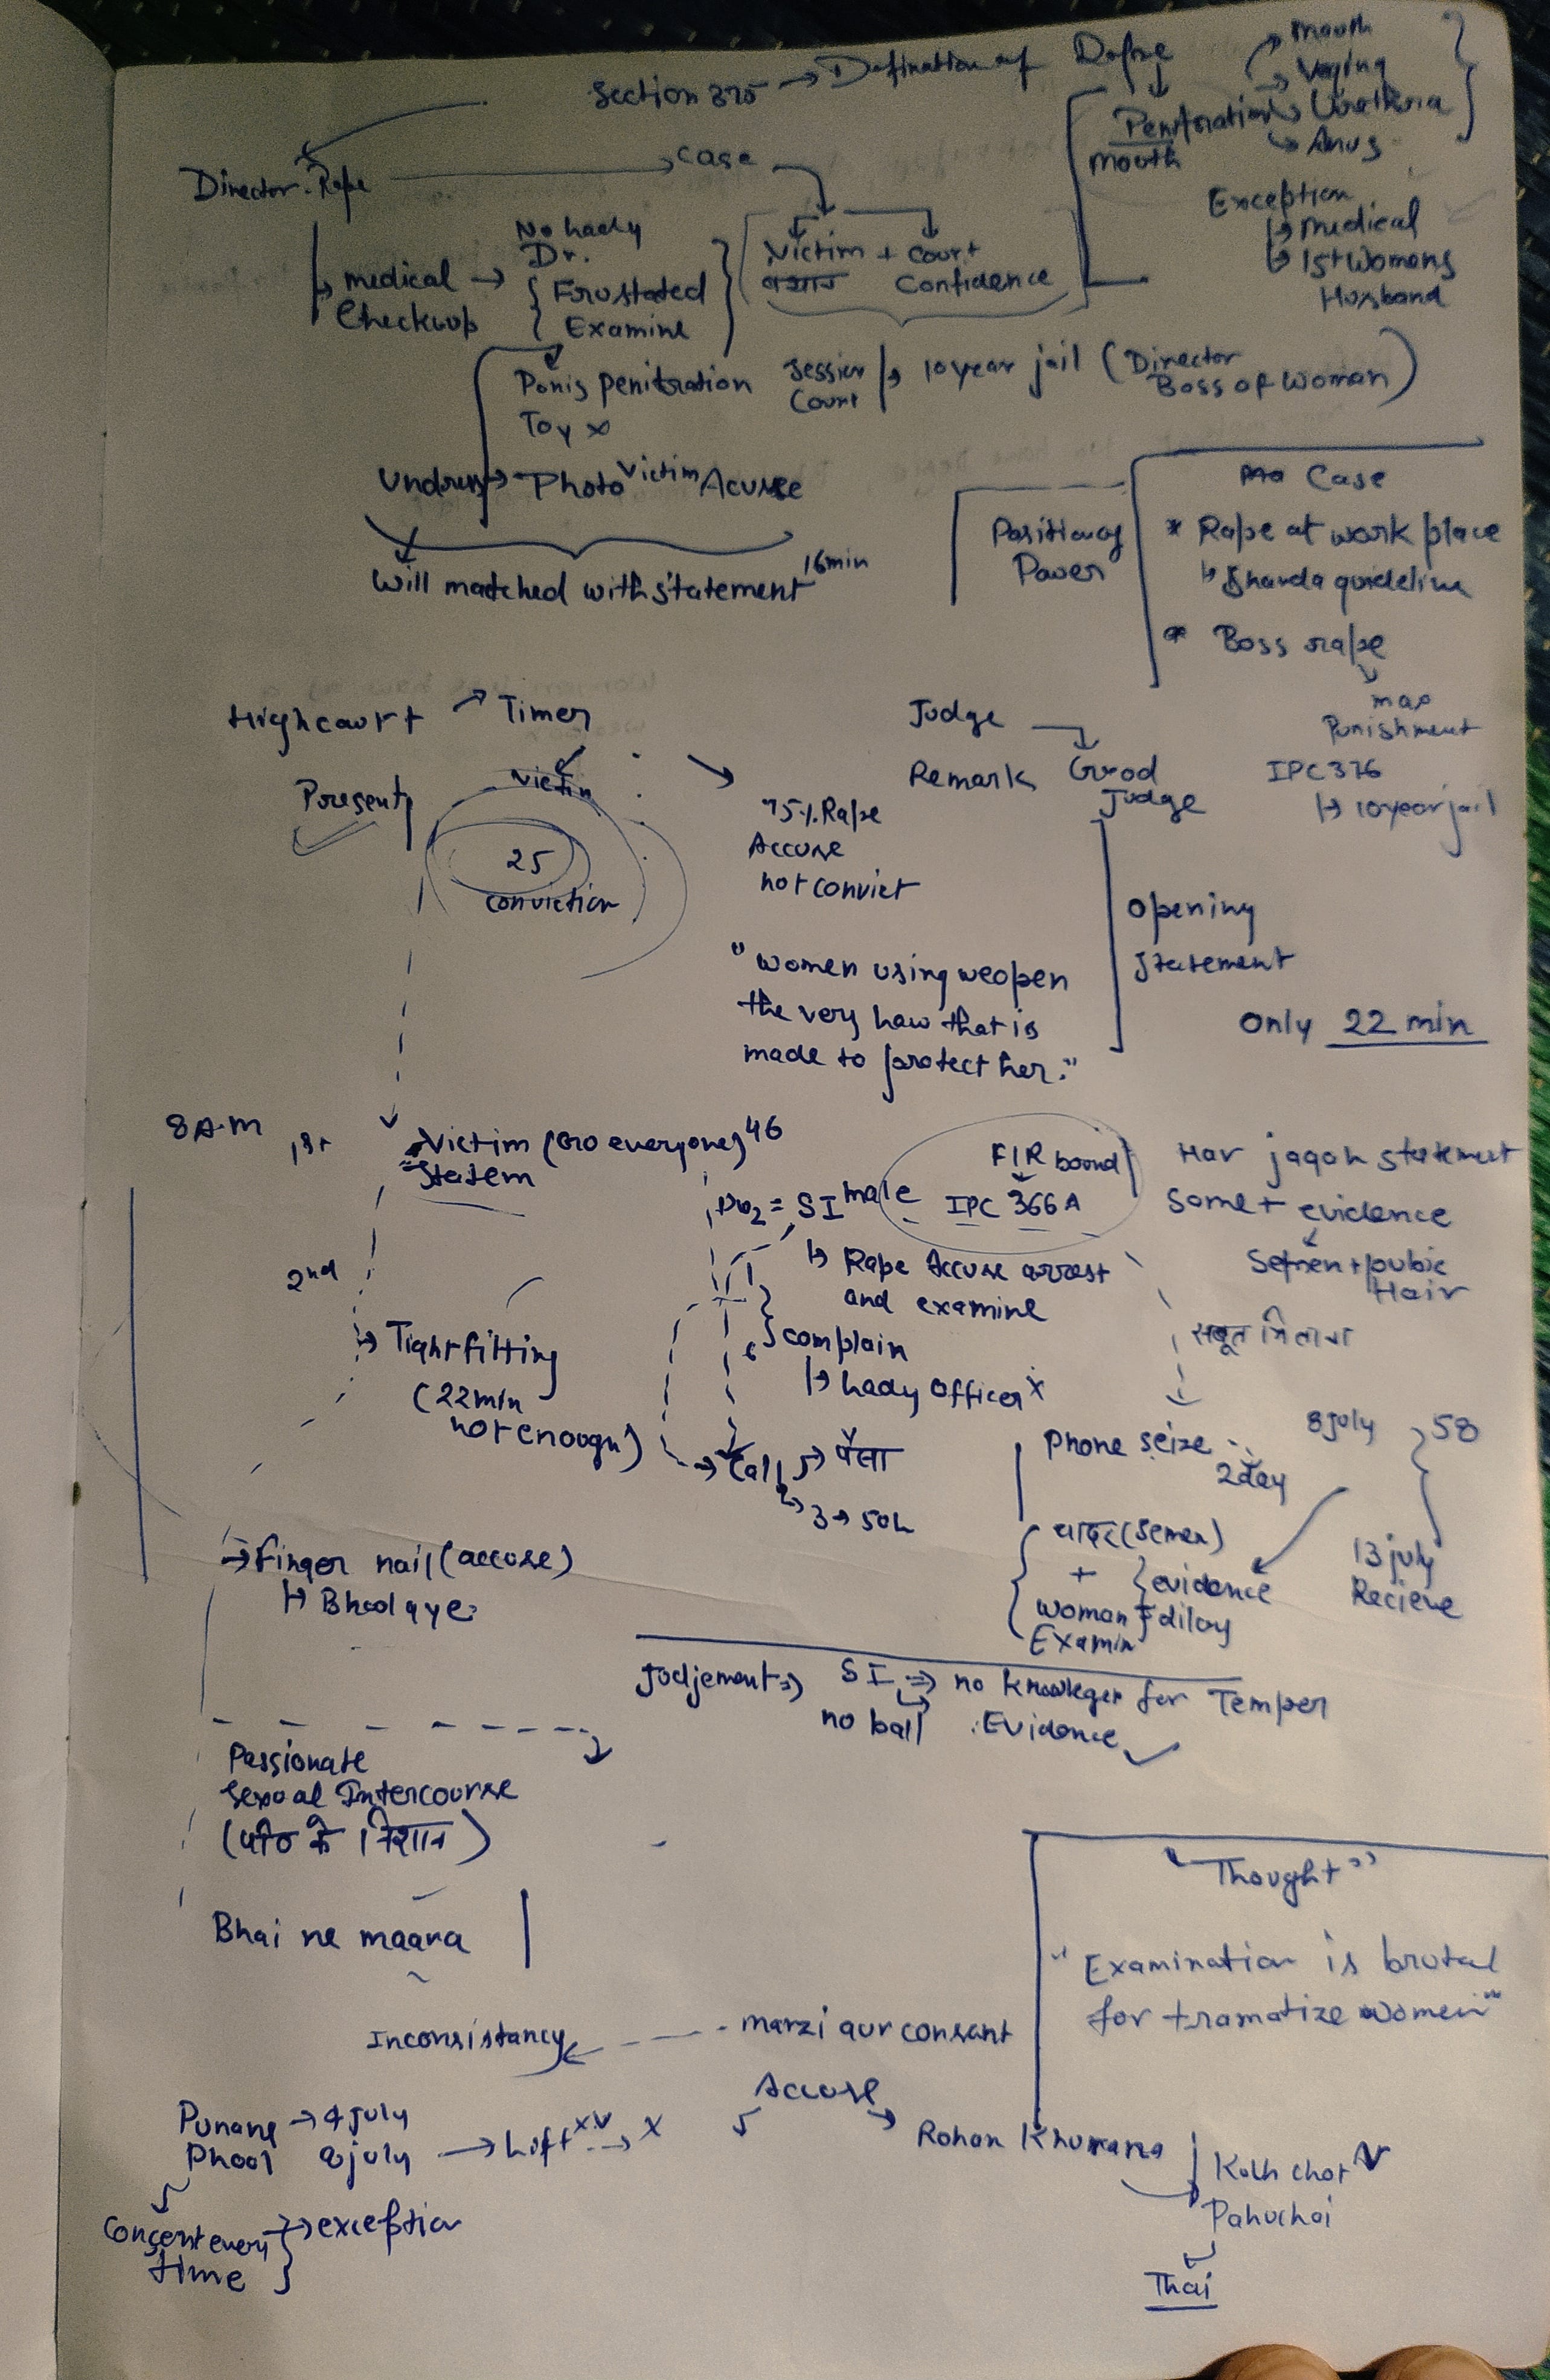 Section 375 → Defination of
Mouth
Vaging
Penitration
Urethra
Anus
Mouth
Director Rape
case
Exception
Medical
1st Womens
Husband
No lady
Dr.
Medical → Frustated
Checkup
Examine
Victim + Court
Confidence
Penis penitration
Toy x
Session
Court
10 year jail (Director
Boss of Woman)
Undress → Photo Victim Accuse
Will matched with statement 16min
Position of
Power
Case
* Rape at work place
guideline
* Boss rape
max
Punishment
IPC 376
10 year jail
Highcourt
Timer
Victim
Present
25
conviction
75% Rape
Accuse
not convict
Judge
Remark
Good
Judge
"women using weopen
the very law that is
made to protect her."
Opening
Statement
Only 22 min
8 A.M
1st
Victim (Gro everyone) 46
Statem
= SI male
FIR bound
IPC 366A
Rape Accuse arrest
and examine
complain
Lady Officer x
Har jagah statement
same + evidence
Semen + pubic
Hair
2nd
Tight fitting
(22min
not enough)
Call → पैसा
3 → 50L
Phone seize
2day
8 july
58
चादर (Semen)
+
woman
Examin
evidence
dilay
13 july
Recieve
→ Finger nail (accuse)
Judjement ⇒ SI ⇒ no knowleger for Temper
no ball
Evidence
Passionate
Sexual Intercourse
(पीठ के निशान)
Bhai ne maara
"Thought"
"Examination is brutal
for tramatize women"
Inconsistancy
marzi aur consent
Accuse
Rohan Khurana
Punane → 4 july
Phool 8 july → Lift → x
Pahuchai
Thai
Concent every
time
→ exception